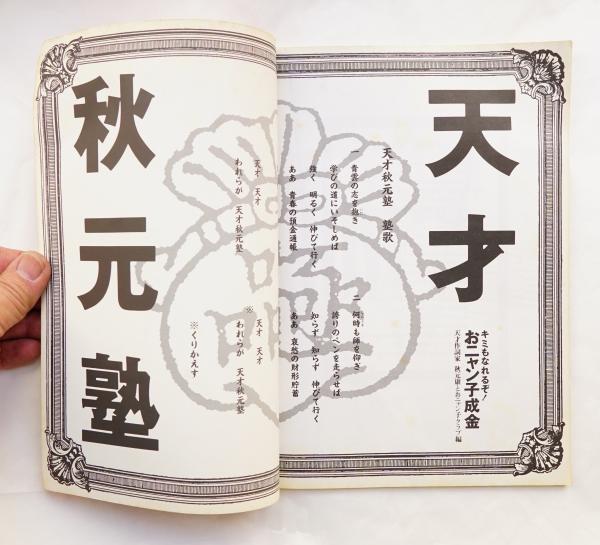 天才
秋元塾
キミもなれるぞ！
おニャン子成金
天才作詞家 秋元康とおニャン子クラブ 編
天才秋元塾 塾歌
一 青雲の志を抱き
学びの道にいそしめば
強く 明るく 伸びて行く
ああ 青春の預金通帳
天才 天才
われらが 天才秋元塾
二 何時も師を仰ぎ
誇りのペンを走らせば
知らず 知らず 伸びて行く
ああ 哀愁の財形貯蓄
※天才 天才
われらが 天才秋元塾
※くりかえす